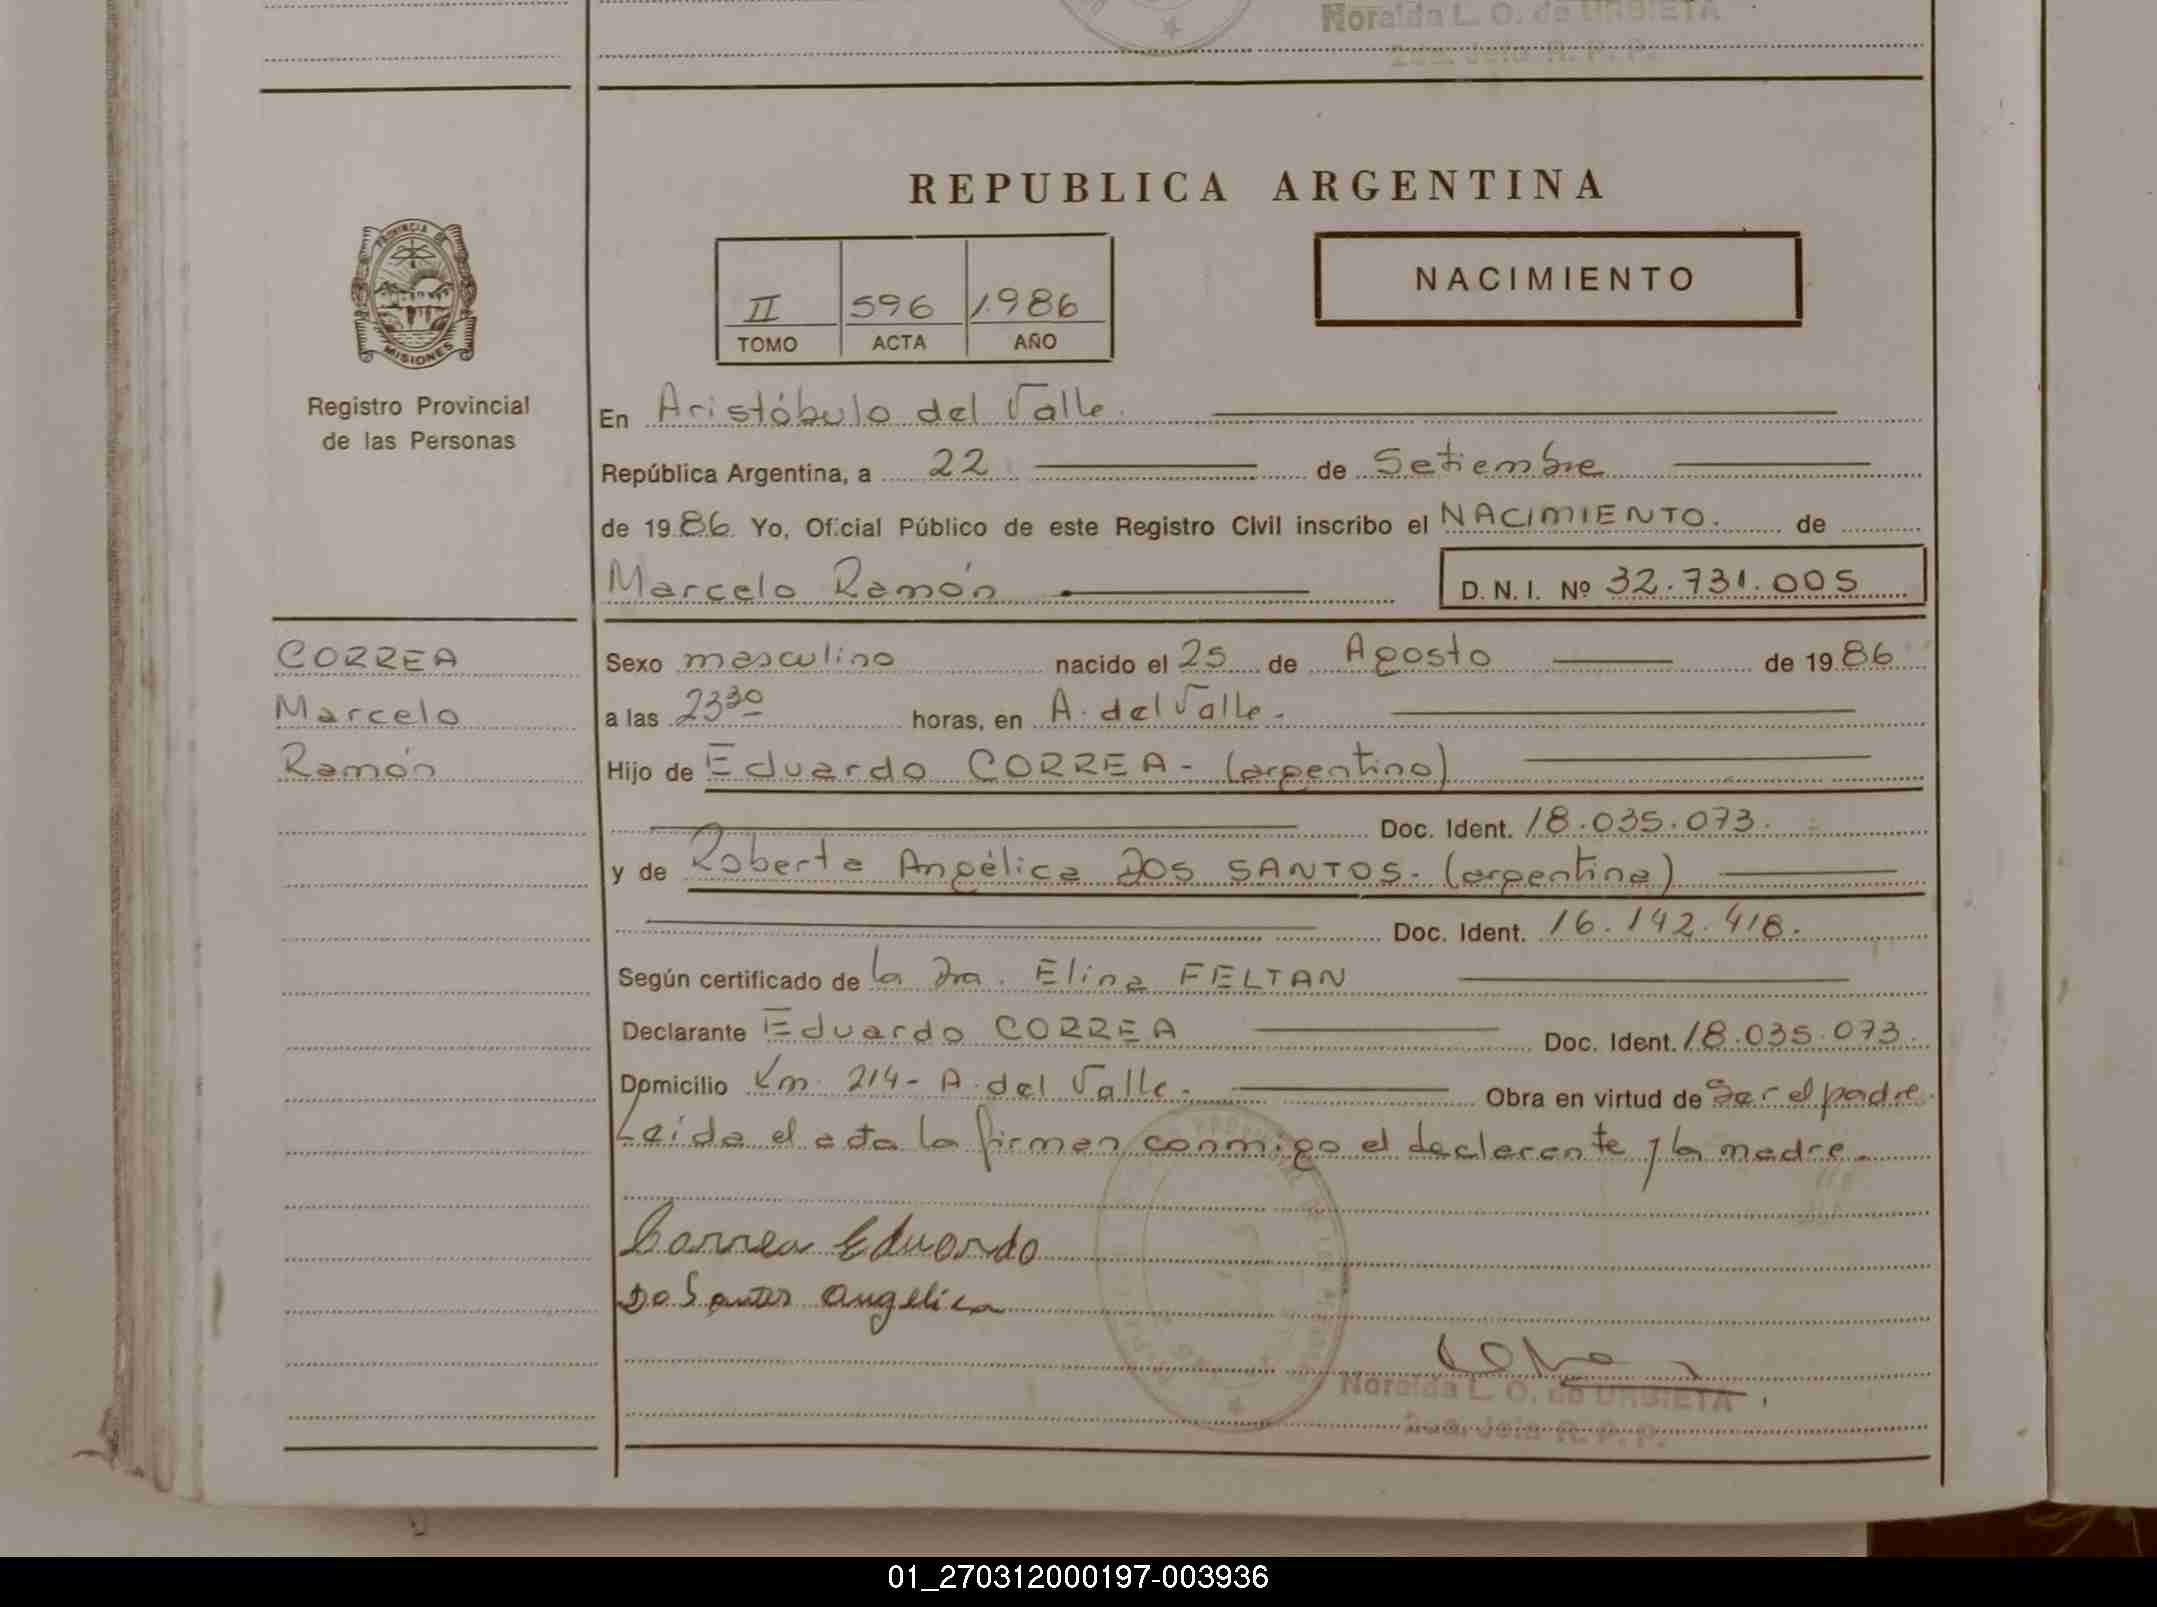 Noralda L. O. de URBIETA
REPUBLICA ARGENTINA
PROVINCIA DE
MISIONES
Registro Provincial
de las Personas
II 596 1.986
TOMO ACTA AÑO
NACIMIENTO
En Aristóbulo del Valle.
República Argentina, a 22 de Setiembre
de 1986 Yo, Oficial Público de este Registro Civil inscribo el NACIMIENTO. de
Marcelo Ramón D. N. I. Nº 32.731.005
CORREA
Marcelo
Ramón
Sexo masculino nacido el 25 de Agosto de 1986
a las 23 30 horas, en A. del Valle.
Hijo de Eduardo CORREA - (argentino)
Doc. Ident. 18.035.073.
y de Roberta Angélica DOS SANTOS - (argentina)
Doc. Ident. 16.142.418.
Según certificado de la Dra. Elina FELTAN
Declarante Eduardo CORREA Doc. Ident. 18.035.073.
Domicilio Km. 214 - A. del Valle. Obra en virtud de Ser el padre.
Leída el acta la firman conmigo el declarante y la madre.
Correa Eduardo
Do Santos Angelica
Noralda L. O. de URBIETA
R. P. P.
01_270312000197-003936